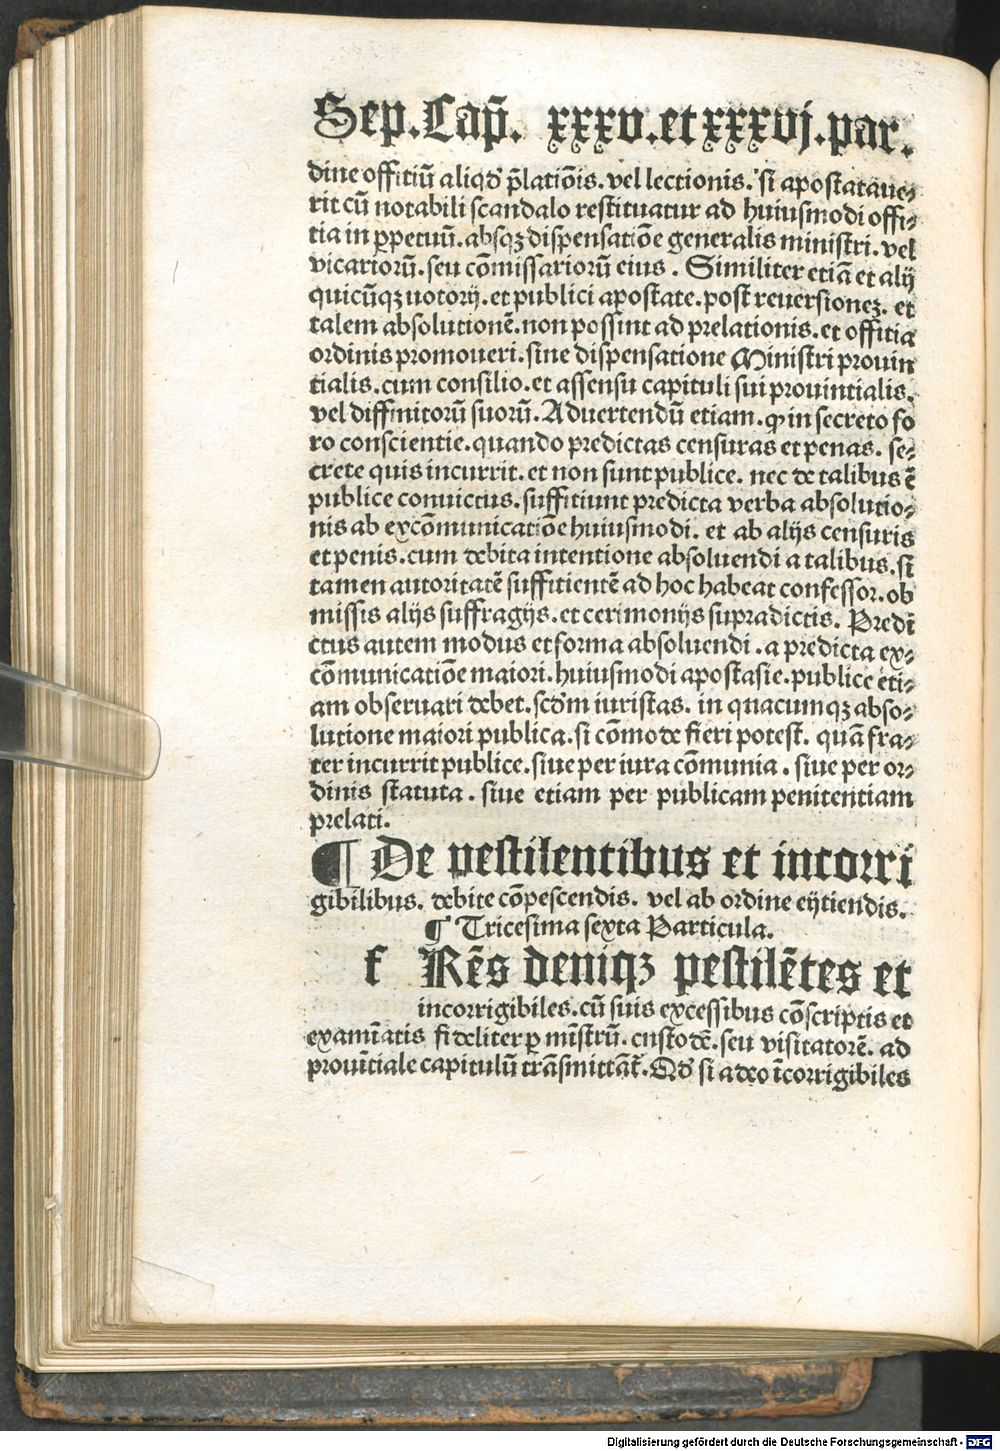 Sep. Cap̄. xxxv. et xxxvj. par.
dine offitiū aliqď p̄lationis. vel lectionis. si apostataue⸗
rit cū notabili scandalo restituatur ad huiusmodi offi⸗
tia in ꝑpetuū. absqꝫ dispensatiōe generalis ministri. vel
vicariorū. seu cōmissariorū eius. Similiter etiā et alij
quicūqꝫ uotorij. et publici apostate. post reuersioneꝫ. et
talem absolutionē. non possint ad prelationis. et offitia
ordinis promoueri. sine dispensatione Ministri prouin
tialis. cum consilio. et assensu capituli sui prouintialis.
vel diffinitorū suorū. Aduertendū etiam. ꝙ in secreto fo
ro conscientie. quando predictas censuras et penas. se⸗
crete quis incurrit. et non sunt publice. nec de talibus ē
publice conuictus. suffitiunt predicta verba absolutio⸗
nis ab excōmunicatiōe huiusmodi. et ab alijs censuris
et penis. cum debita intentione absoluendi a talibus. si
tamen autoritatē suffitientē ad hoc habeat confessor. ob
missis alijs suffragijs. et cerimonijs supradictis. Predi
ctus autem modus et forma absoluendi. a predicta ex⸗
cōmunicatiōe maiori. huiusmodi apostasie. publice eti⸗
am obseruari debet. scďm iuristas. in quacumqꝫ abso⸗
lutione maiori publica. si cōmode fieri potest. quā fra⸗
ter incurrit publice. siue per iura cōmunia. siue per or⸗
dinis statuta. siue etiam per publicam penitentiam
prelati.
¶ De pestilentibus et incorri
gibilibus. debite cōpescendis. vel ab ordine eijtiendis.
¶ Tricesima sexta Particula.
f Rēs deniqꝫ pestilētes et
incorrigibiles. cū suis excessibus cōscriptis et
examīatis fideliter ꝑ mīstrū. custodē. seu visitatorē. ad
prouītiale capitulū trāsmittāt̄. Qď si adeo īcorrigibiles
Digitalisierung gefördert durch die Deutsche Forschungsgemeinschaft - DFG